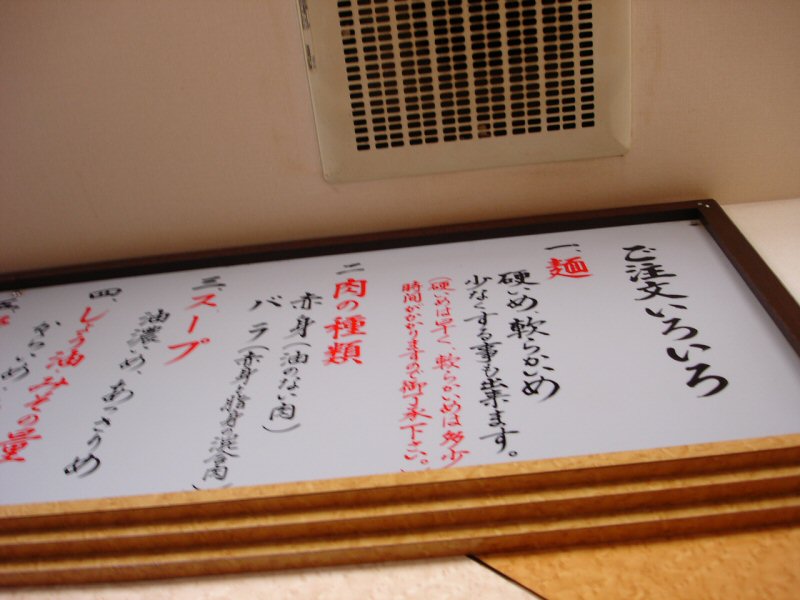 ご注文いろいろ
一、麺
硬いめ、軟らかいめ
少なくする事も出来ます。
(硬いめは早く、軟らかいめは多少
時間がかかりますので御了承下さい。)
二、肉の種類
赤身(油のない肉)
バラ(赤身と脂身の混合肉)
三、スープ
油濃いめ、あっさりめ
四、しょう油、みその量
からいめ